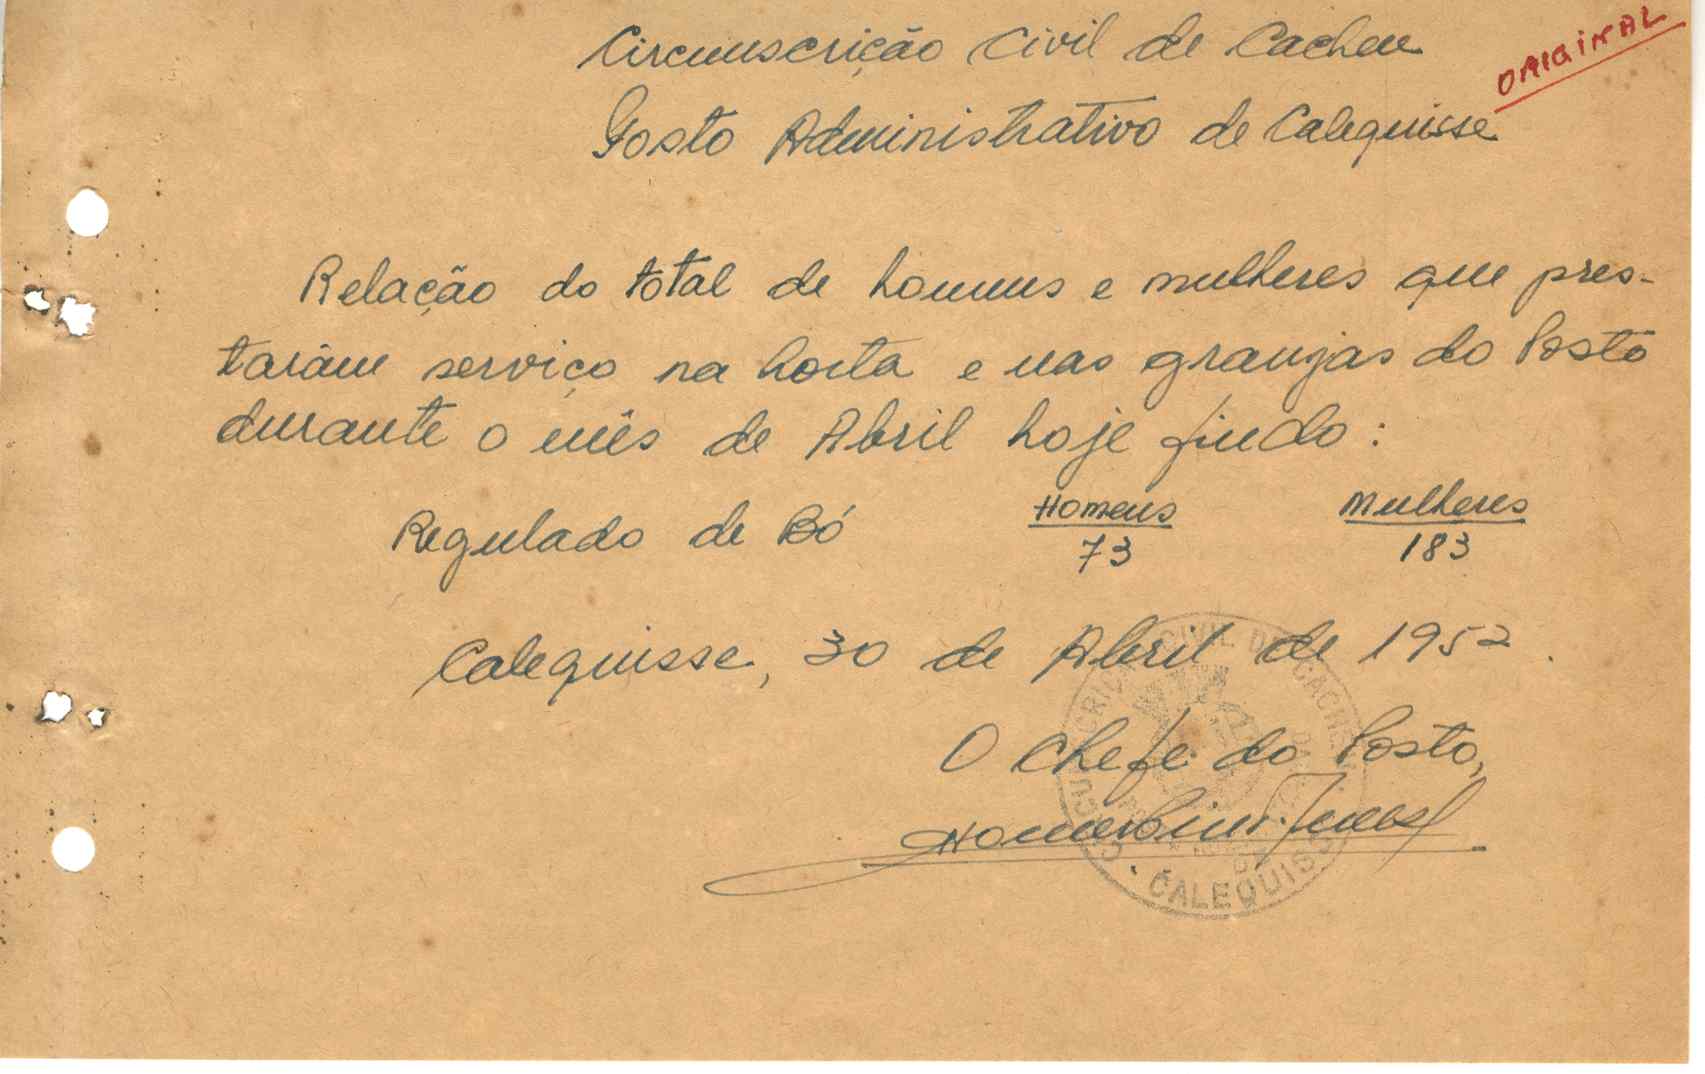 Circunscrição Civil de Cacheu
ORIGINAL
Posto Administrativo de Calequisse
Relação do total de homens e mulheres que pres-
tarâm serviço na horta e nas granjas do Posto
durante o mês de Abril hoje findo:
Regulado de Bó
Homens
73
Mulheres
183
Calequisse, 30 de Abril de 1952.
O Chefe do Posto,
CIVIL DE CACHEU
CALEQUISSE